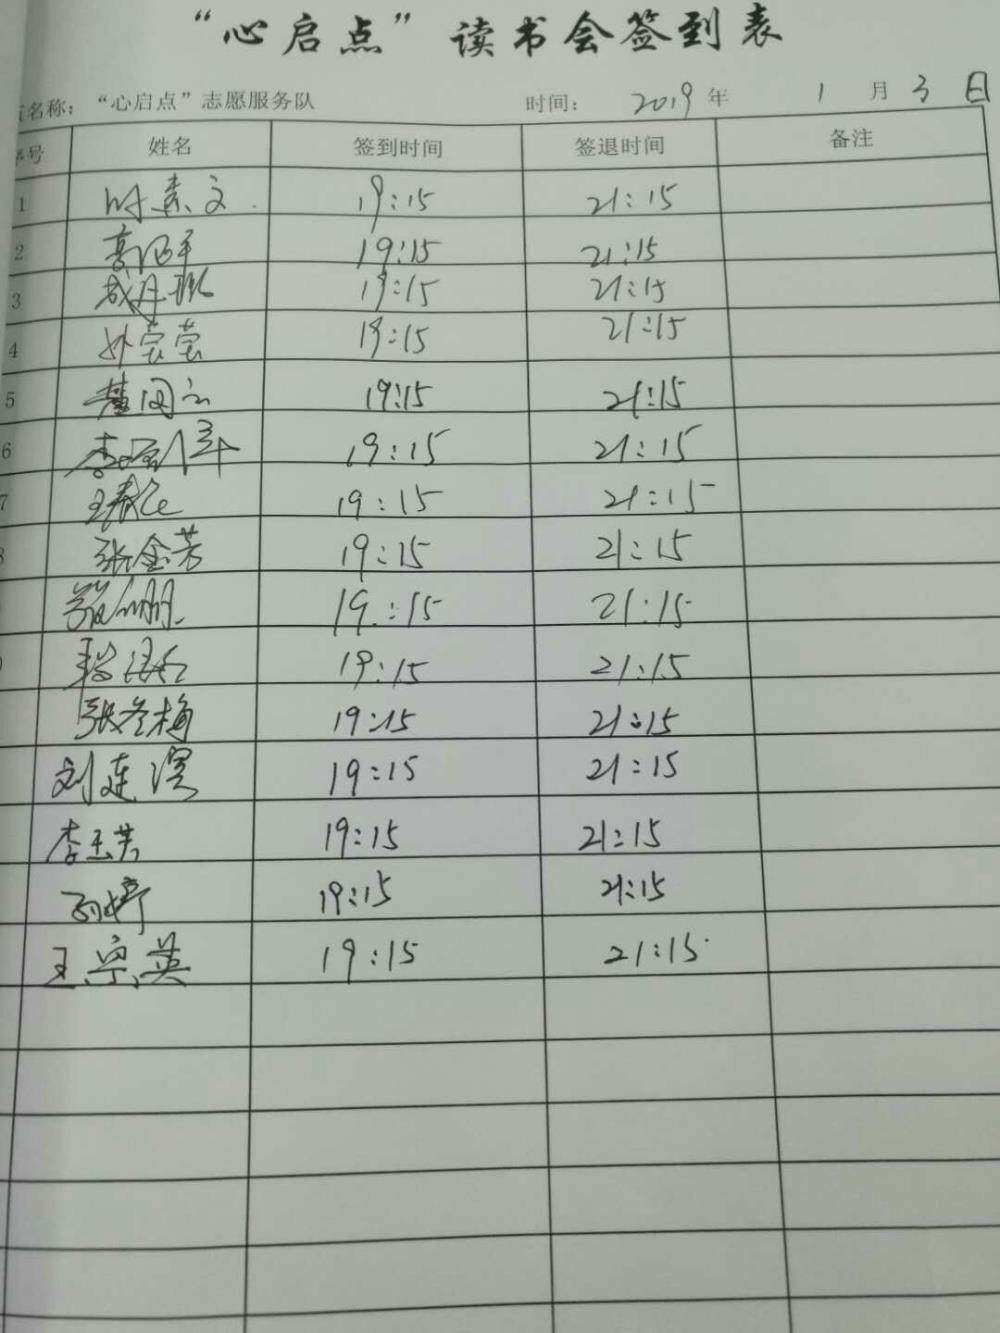 “心启点”读书会签到表
名称：“心启点”志愿服务队 时间： 2019 年 1 月 3 日
号 姓名 签到时间 签退时间 备注
1 时素文 19:15 21:15
2 19:15 21:15
3 19:15 21:15
4 孙莹莹 19:15 21:15
5 19:15 21:15
6 李 19:15 21:15
7 王春 19:15 21:15
张金芳 19:15 21:15
19:15 21:15
19:15 21:15
张冬梅 19:15 21:15
刘连 19:15 21:15
李玉芳 19:15 21:15
孙婷 19:15 21:15
王宗英 19:15 21:15